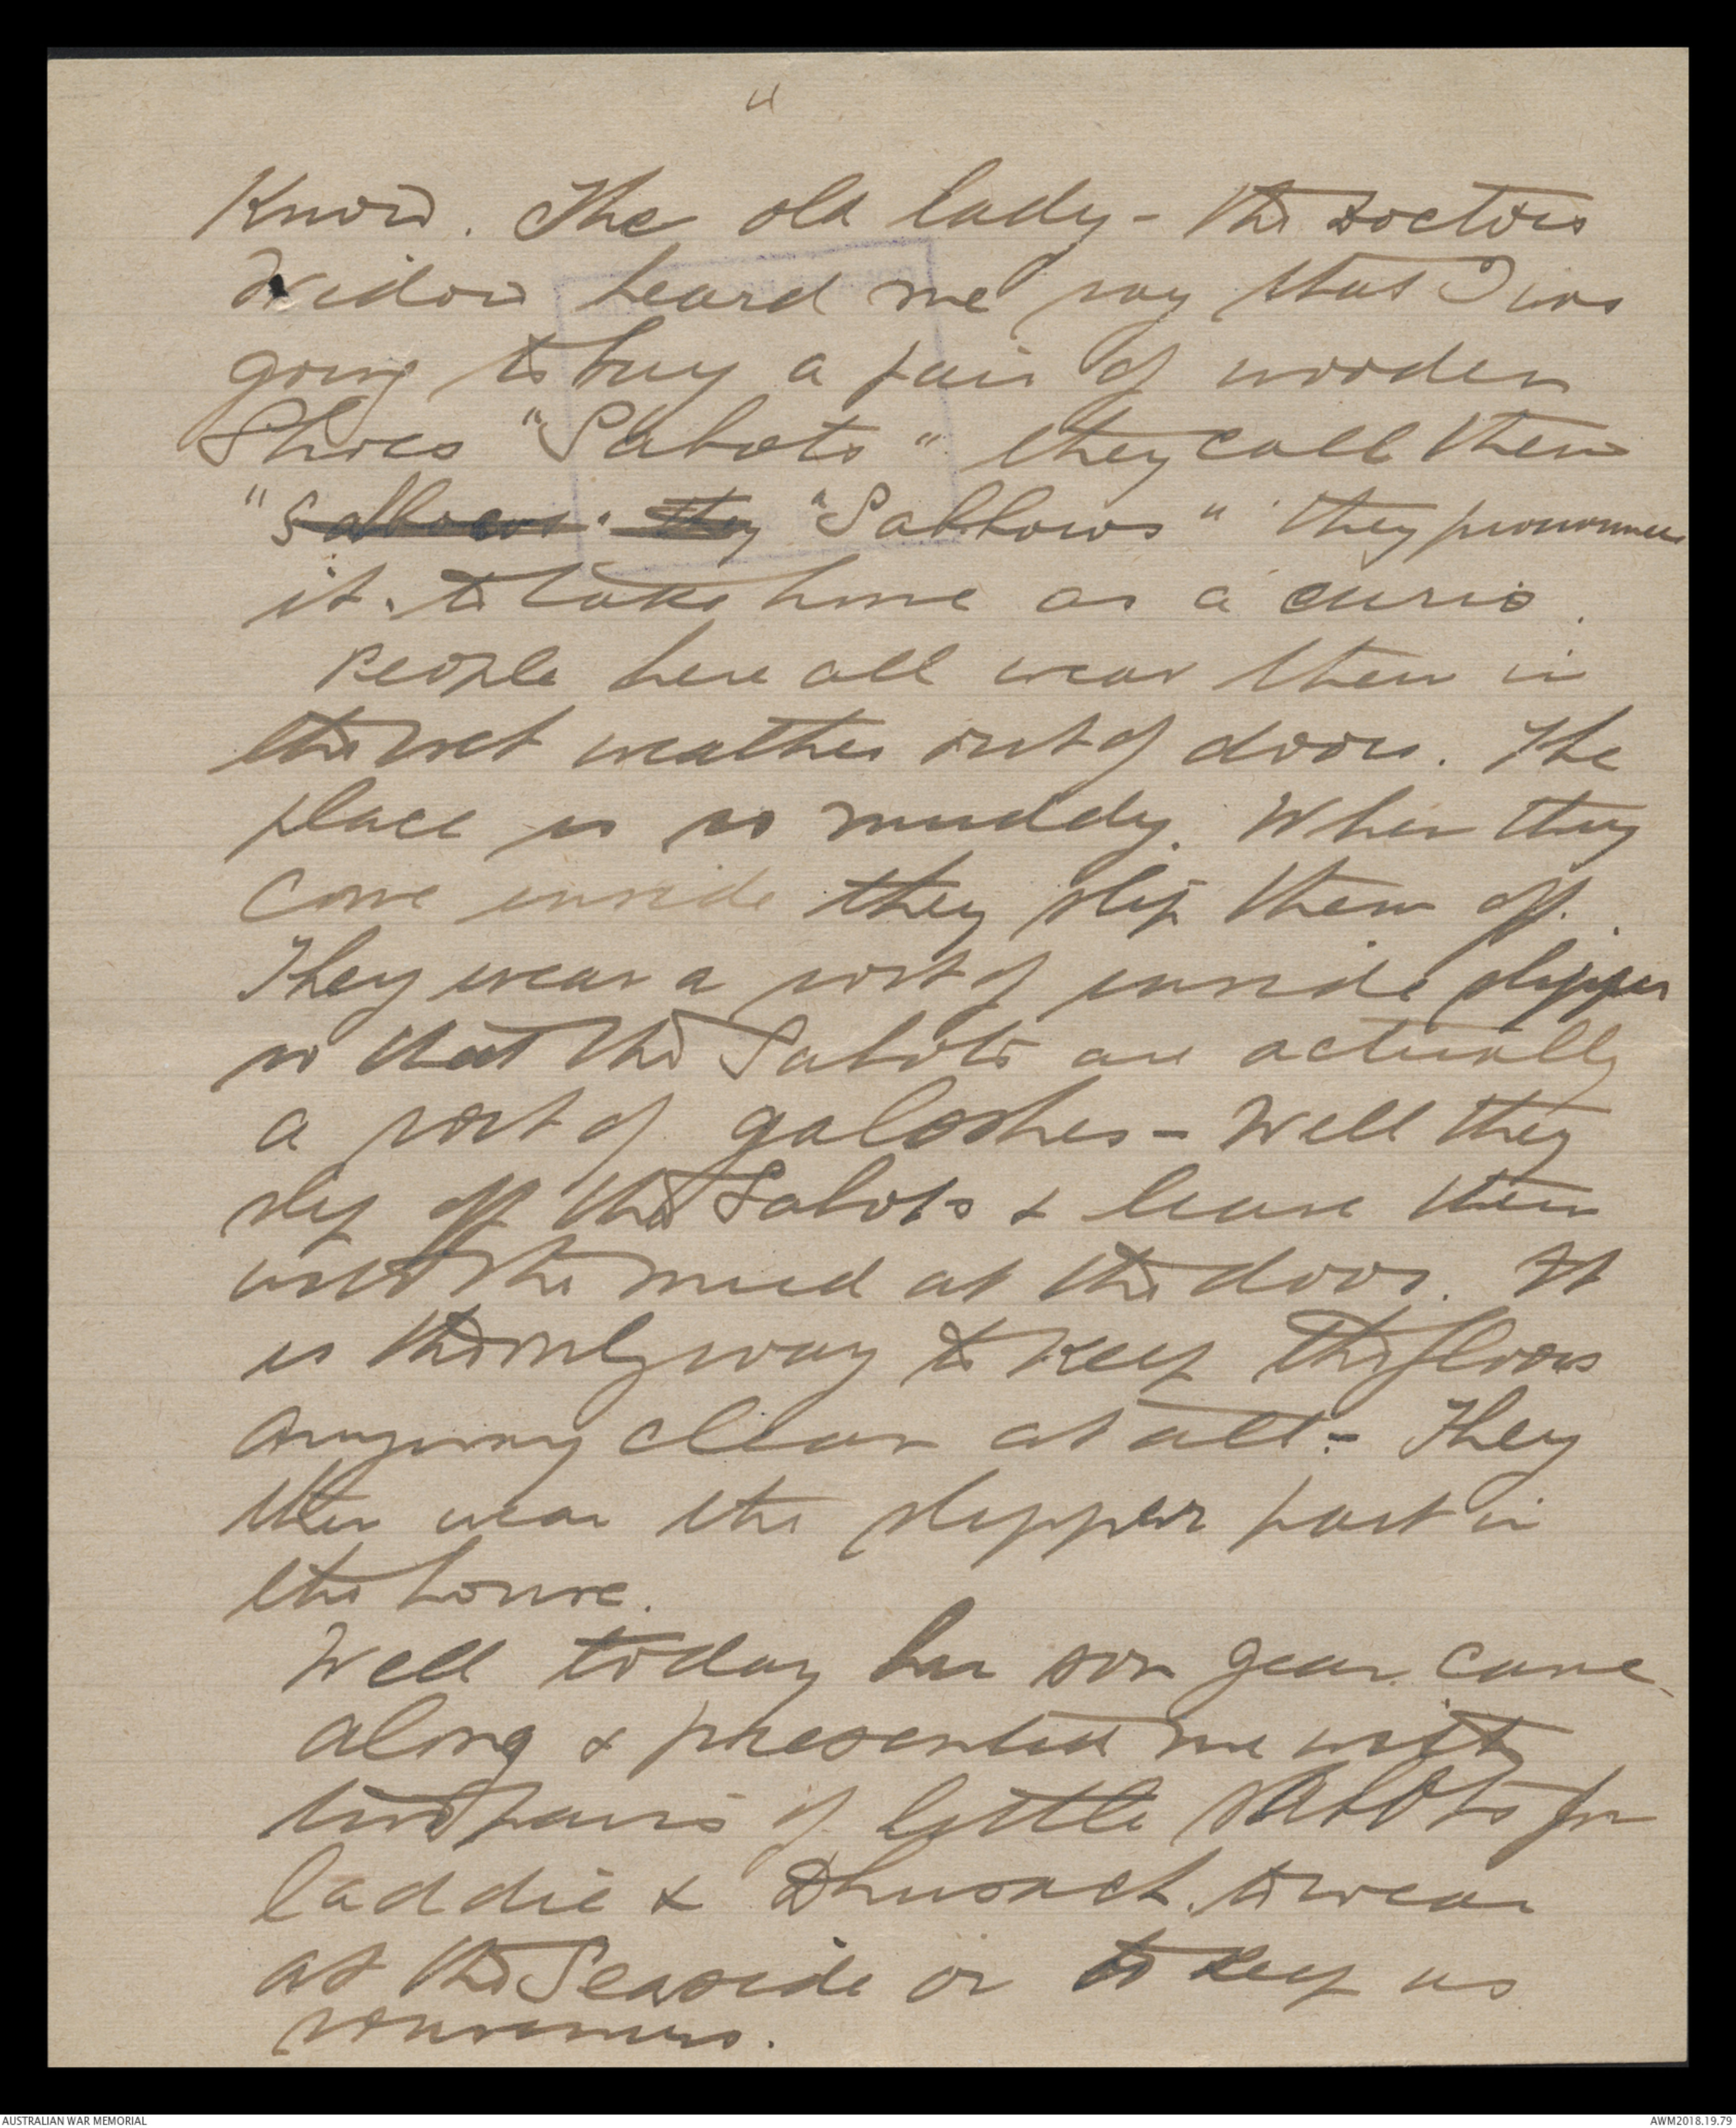 4
Know. The old lady - the doctors
Widow heard me say that I was
going to buy a pair of wooden
Shoes "Sabots" they call them
"Sabbows" they pronounce
it. to take home as a curio.
People here all wear them in
the wet weather out of doors. The
place is so muddy. When they
come inside they slip them off.
They wear a sort of inside slipper
so that the Sabots are actually
a sort of galoshes - Well they
slip off the Sabots & leave them
with the mud at the door. It
is the only way to keep the floors
anyway clean at all - They
then wear the slipper part in
the house.
Well today her son Jean came
along & presented me with
two pairs of little sabots for
laddie & to wear
at the Seaside or to keep as
souvenirs.
AUSTRALIAN WAR MEMORIAL
AWM2018.19.79